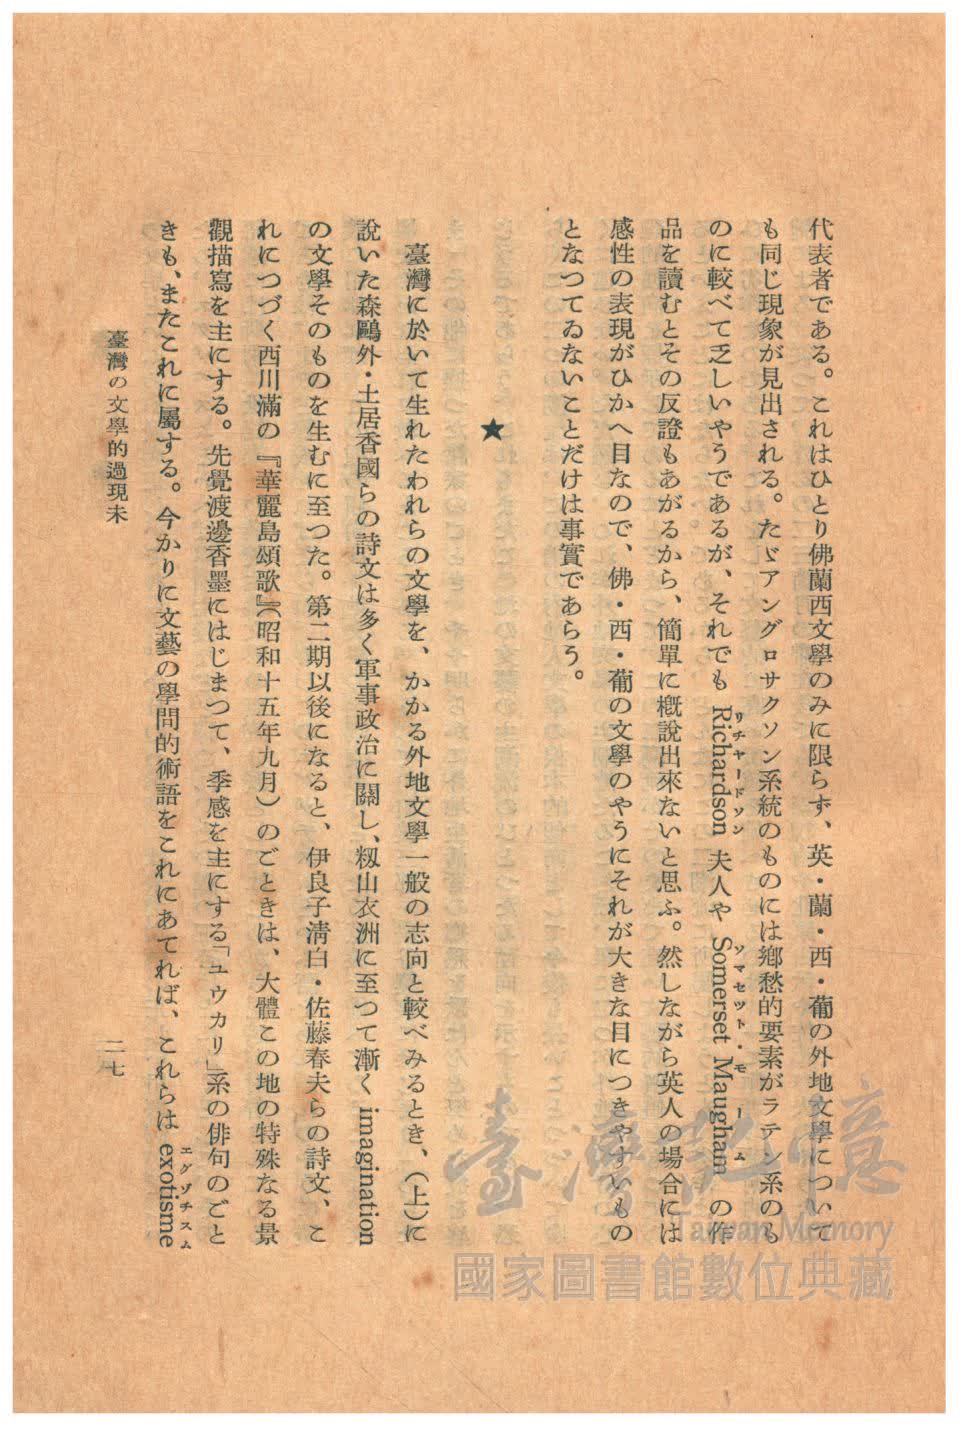 代表者である。これはひとり佛蘭西文學のみに限らず、英・蘭・西・葡の外地文學について
も同じ現象が見出される。たゞアングロサクソン系統のものには鄕愁的要素がラテン系のも
のに較べて乏しいやうであるが、それでも Richardson 夫人や Somerset Maugham の作
リチヤードソン
ソマセツト・モーム
品を讀むとその反證もあがるから、簡單に槪說出來ないと思ふ。然しながら英人の場合には
感性の表現がひかへ目なので、佛・西・葡の文學のやうにそれが大きな目につきやすいもの
となつてゐないことだけは事實であらう。
★
臺灣に於いて生れたわれらの文學を、かかる外地文學一般の志向と較べみるとき、(上)に
說いた森鷗外・土居香國らの詩文は多く軍事政治に關し、籾山衣洲に至つて漸く imagination
の文學そのものを生むに至つた。第二期以後になると、伊良子淸白・佐藤春夫らの詩文、こ
れにつづく西川滿の『華麗島頌歌』(昭和十五年九月)のごときは、大體この地の特殊なる景
觀描寫を主にする。先覺渡邊香墨にはじまつて、季感を主にする「ユウカリ」系の俳句のごと
きも、またこれに屬する。今かりに文藝の學問的術語をこれにあてれば、これらは exotisme
エグゾチスム
臺灣の文學的過現未
二七
臺灣記憶
Taiwan Memory
國家圖書館數位典藏